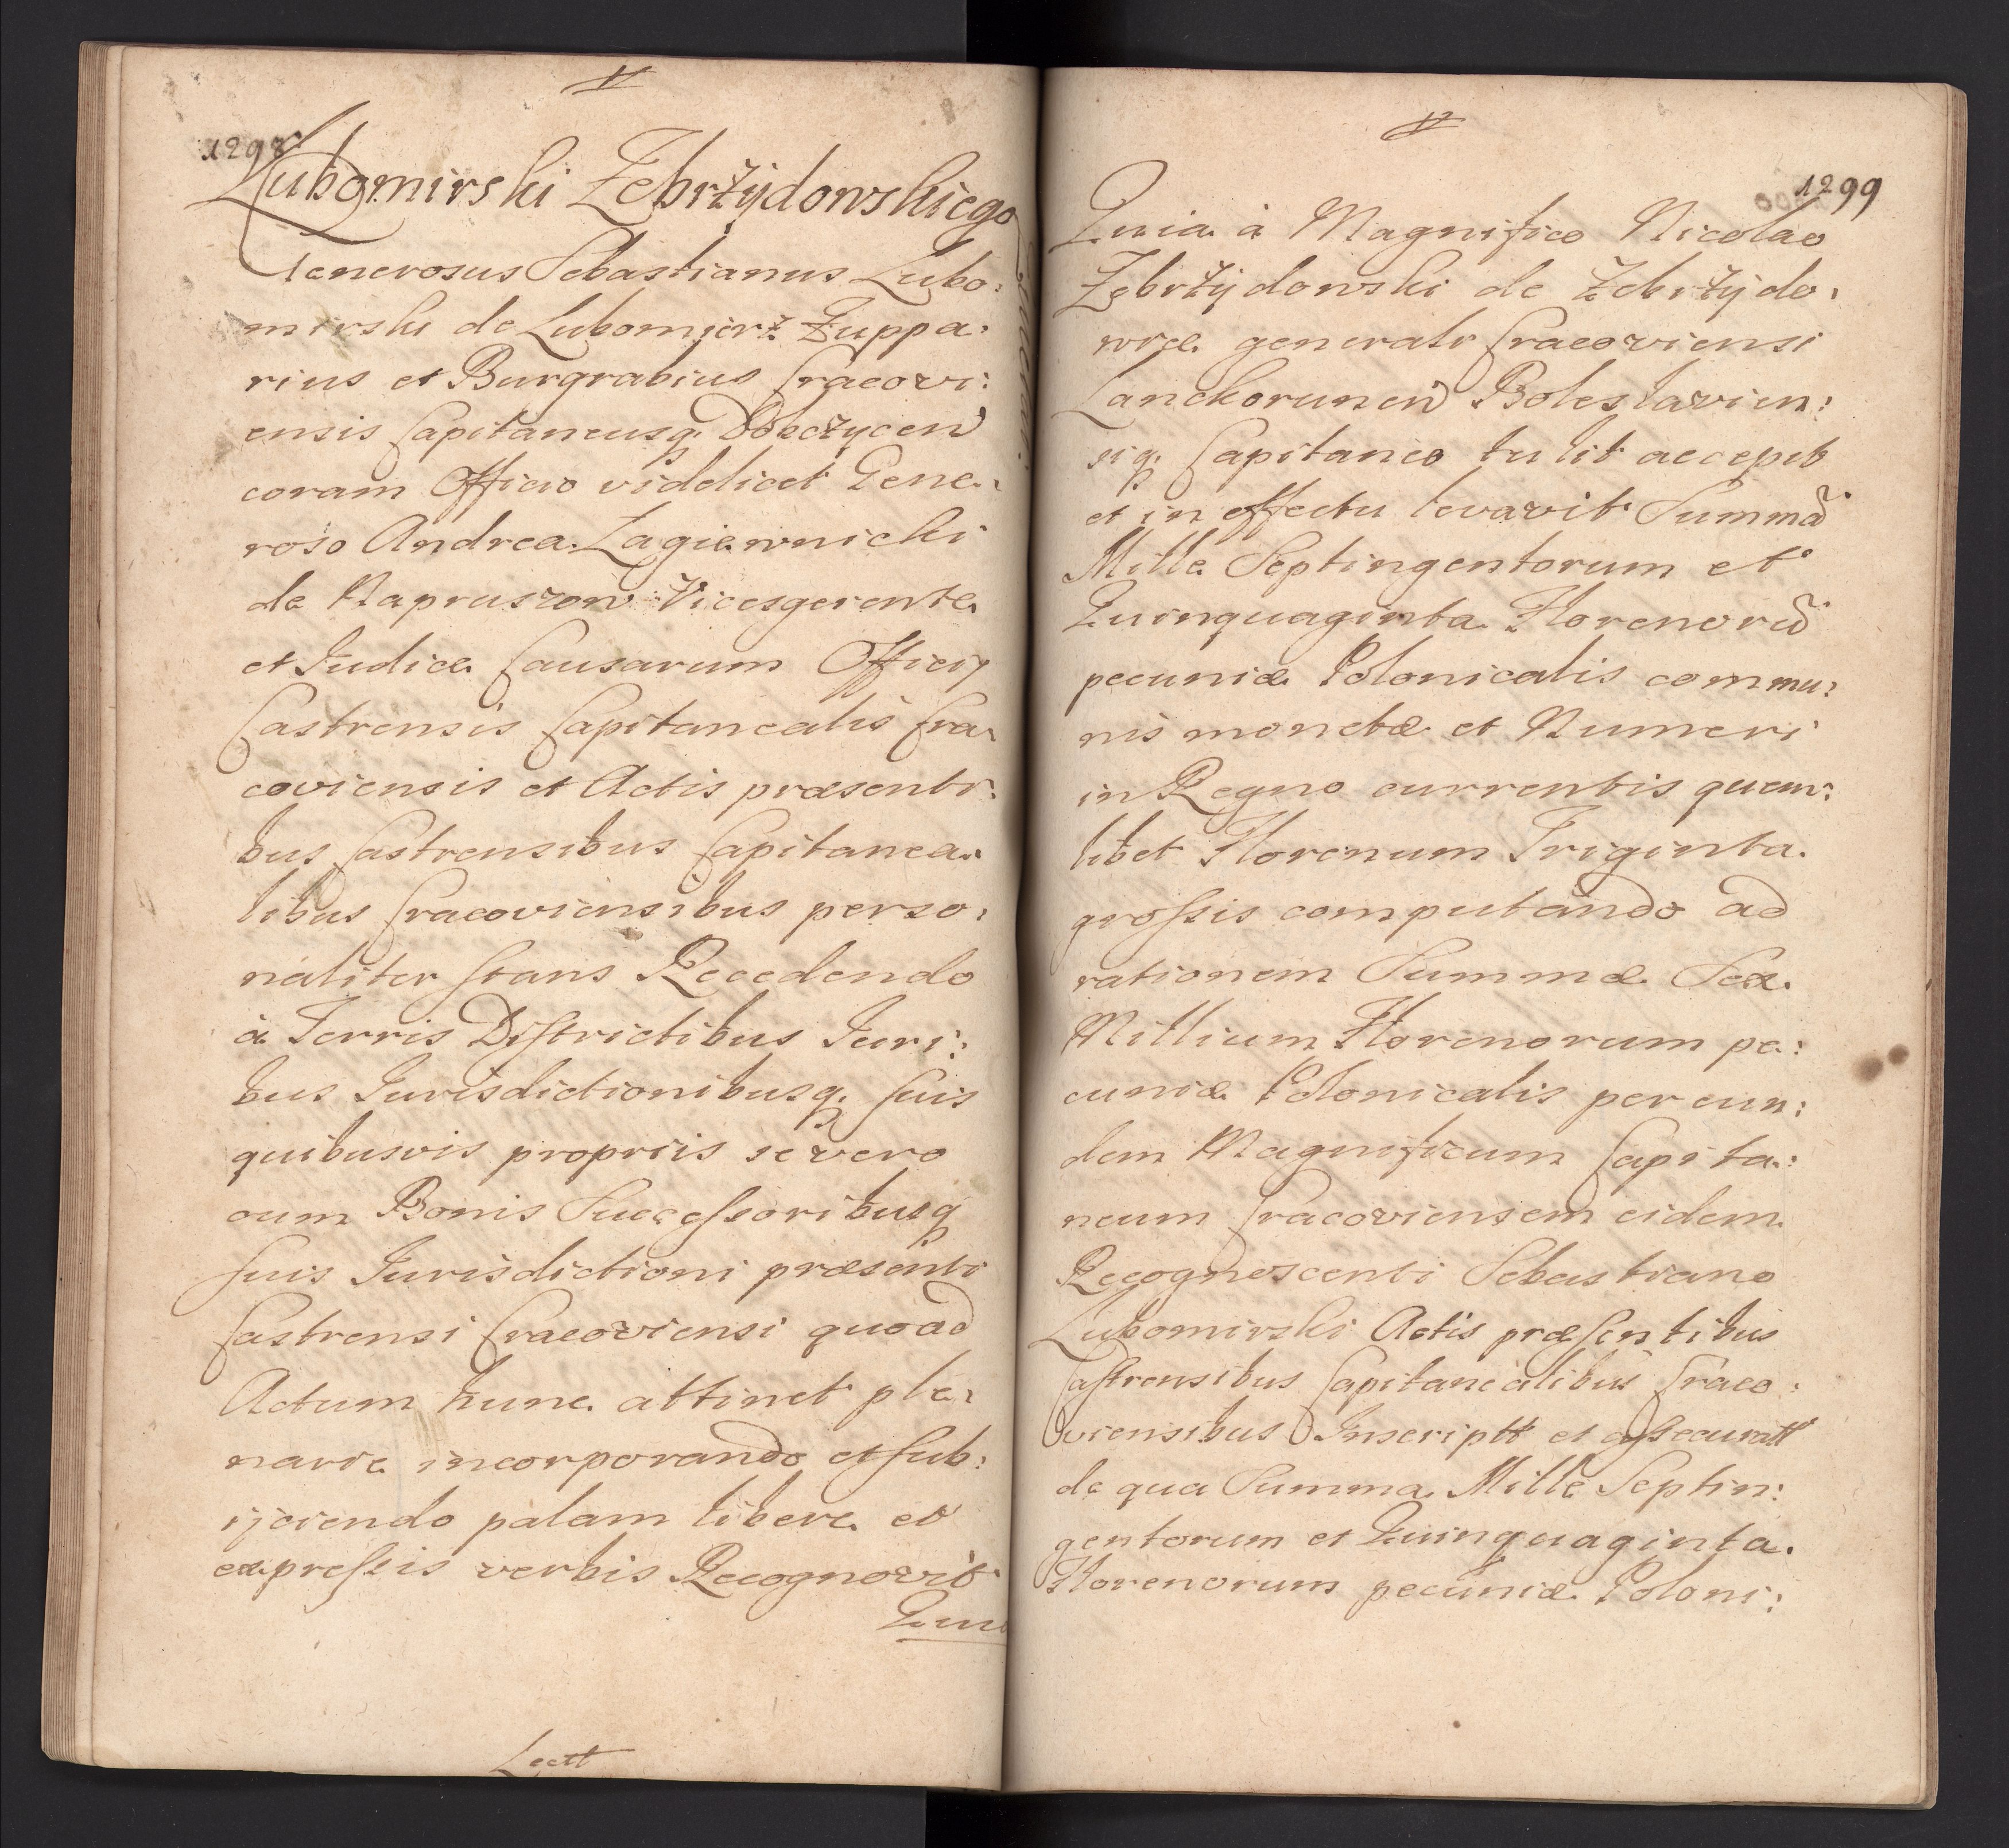 1298
Lubomirski Zebrżÿdowskiego
Generosus Sebastianus Lubo:
mirski de Lubomierż Żuppa:
rius et Burgrabius Cracovi:
ensis Capitaneusq. Dobczÿcen
coram Officio videlicet Gene:
roso Andrea Łagiewnicki
de Napruszow Vicesgerente
et Judice Causarum Officij
Castrensis Capitanealis Cra:
coviensis et Actis præsenti:
bus Castrensibus Capitanea:
libus Cracoviensibus perso:
naliter stans Recedendo
à Terris Districtibus Juri:
bus Jurisdictionibusq. suis
quibusvis propriis se vero
cum Bonis Successoribusq
suis Jurisdictioni præsenti
Castrensi Cracoviensi quoad
Actum hunc attinet ple:
narie incorporando et sub:
ijciendo palam libere et
expressis verbis Recognovit
Quia
Lectt
1299
Quia à Magnifico Nicolao
Zebrżÿdowski de Zebrżÿdo:
wice generali Cracoviensi
Lanckorunen Boleslavien:
siq. Capitaneo tulit accepit
et in effectu levavit Summã
Mille Septingentorum et
Quinquaginta Florenorũ
pecuniæ Polonicalis commu:
nis monetæ et Numeri
in Regno currentis quem:
libet Florenum Triginta
grossis computando ad
rationem Summæ Sex
Millium Florenorum pe:
cuniæ Polonicalis per eun:
dem Magnificum Capita:
neum Cracoviensem eidem
Recognoscenti Sebastiano
Lubomirski Actis præsentibus
Castrensibus Capitanealibus Craco:
viensibus Inscriptt et assecuratt
de qua Summa Mille Septin:
gentorum et Quinquaginta
Florenorum pecuniæ Poloni: